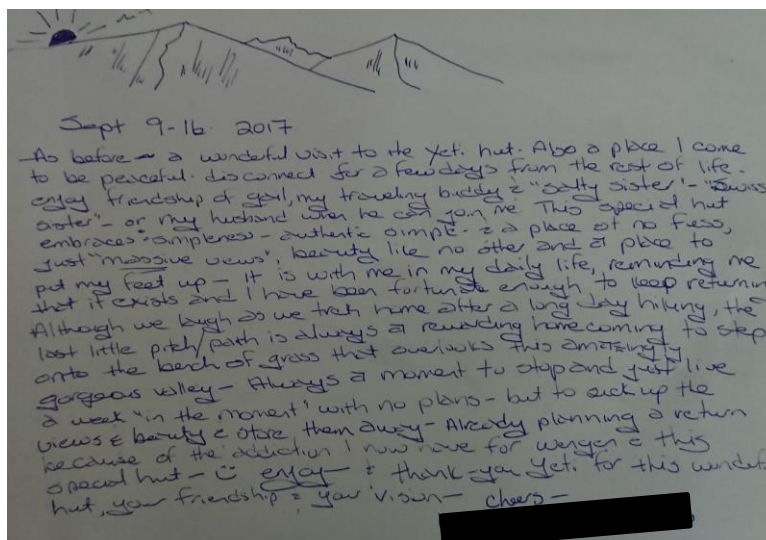 Sept 9-16. 2017
As before - a wonderful visit to the Yeti hut. Also a place I come
to be peaceful. disconnect for a few days from the rest of life.
enjoy friendship of gail, my traveling buddy & "salty sister" - "Swiss
sister" - or my husband when he can join me. This special hut
embraces "simpleness - authentic simple - & a place of no fuss,
just "massive views", beauty like no other and a place to
put my feet up - it is with me in my daily life, reminding me
that it exists and I have been fortunate enough to keep returnin
Although we laugh as we trek home after a long day hiking, the
last little pitch/path is always a rewarding homecoming to step
onto the bench of grass that overlooks this amazingly
gorgeous valley - Always a moment to stop and just live
a week "in the moment" with no plans - but to suck up the
views & beauty & store them away - Already planning a return
because of the addiction I now have for wengen & this
special hut - enjoy - & thank-you Yeti for this wonderf
hut, your friendship & your vision - cheers -